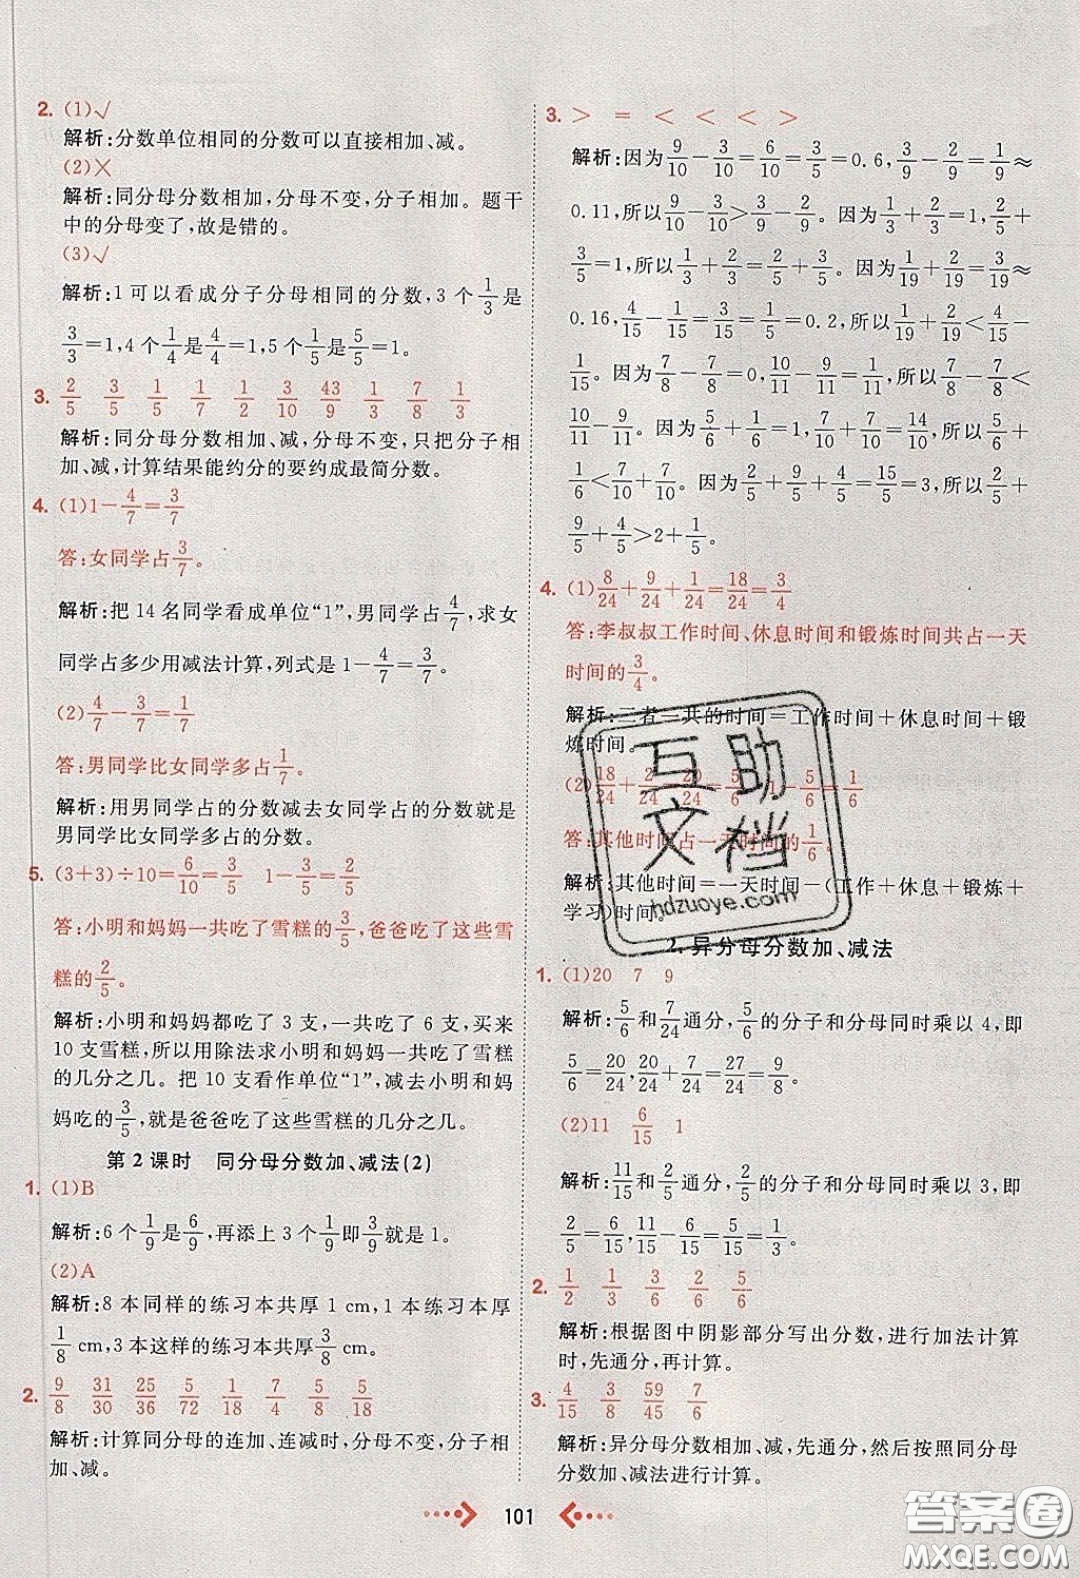 2. (1)√
解析:分数单位相同的分数可以直接相加、减。
(2)×
解析:同分母分数相加,分母不变,分子相加。题干
中的分母变了,故是错的。
(3)√
解析:1可以看成分子分母相同的分数,3个1/3是
3/3=1,4个1/4是4/4=1,5个1/5是5/5=1。
3. 2/5 3/5 1/5 1/7 1/2 3/10 43/9 1/3 7/8 1/3
解析:同分母分数相加、减,分母不变,只把分子相
加、减,计算结果能约分的要约成最简分数。
4. (1)1-4/7=3/7
答:女同学占3/7。
解析:把14名同学看成单位“1”,男同学占4/7,求女
同学占多少用减法计算,列式是1-4/7=3/7。
(2)4/7-3/7=1/7
答:男同学比女同学多占1/7。
解析:用男同学占的分数减去女同学占的分数就是
男同学比女同学多占的分数。
5. (3+3)÷10=6/10=3/5 1-3/5=2/5
答:小明和妈妈一共吃了雪糕的3/5,爸爸吃了这些雪
糕的2/5。
解析:小明和妈妈都吃了3支,一共吃了6支,买来
10支雪糕,所以用除法求小明和妈妈一共吃了雪糕
的几分之几。把10支看作单位“1”,减去小明和妈
妈吃的3/5,就是爸爸吃了这些雪糕的几分之几。
第2课时 同分母分数加、减法(2)
1. (1)B
解析:6个1/9是6/9,再添上3个1/9即3/9就是1。
(2)A
解析:8本同样的练习本共厚1 cm,1本练习本厚
1/8 cm,3本这样的练习本共厚3/8 cm。
2. 9/8 31/30 25/36 5/72 1/18 7/4 5/8 5/18
解析:计算同分母的连加、连减时,分母不变,分子相
加、减。
3. > = < < < >
解析:因为9/10-3/10=6/10=3/5=0.6,3/9-2/9=1/9≈
0.11,所以9/10-3/10>3/9-2/9。因为1/3+2/3=1,2/5+
3/5=1,所以1/3+2/3=2/5+3/5。因为1/19+2/19=3/19≈
0.16,4/15-1/15=3/15=1/5=0.2,所以1/19+2/19<4/15-
1/15。因为7/8-7/8=0,10/11-9/11=1/11,所以7/8-7/8<
10/11-9/11。因为5/6+1/6=1,7/10+7/10=14/10,所以5/6+
1/6<7/10+7/10。因为2/5+9/5+4/5=15/5=3,所以2/5+
9/5+4/5>2+1/5。
4. (1)8/24+9/24+1/24=18/24=3/4
答:李叔叔工作时间、休息时间和锻炼时间共占一天
时间的3/4。
解析:三者一共的时间=工作时间+休息时间+锻
炼时间。
(2)18/24+2/24=20/24=5/6 1-5/6=1/6
答:其他时间占一天时间的1/6。
解析:其他时间=一天时间-(工作+休息+锻炼+
学习)时间
2. 异分母分数加、减法
1. (1)20 7 9
解析:5/6和7/24通分,5/6的分子和分母同时乘以4,即
5/6=20/24,20/24+7/24=27/24=9/8。
(2)11 6/15 1
解析:11/15和2/5通分,2/5的分子和分母同时乘以3,即
2/5=6/15,11/15-6/15=5/15=1/3。
2. 1/2 1/3 3/6 2/6 5/6
解析:根据图中阴影部分写出分数,进行加法计算
时,先通分,再计算。
3. 4/15 3/8 59/45 7/6
解析:异分母分数相加、减,先通分,然后按照同分母
分数加、减法进行计算。
101
互助
文档
hdzuoye.com
答案圈
MXQE.COM